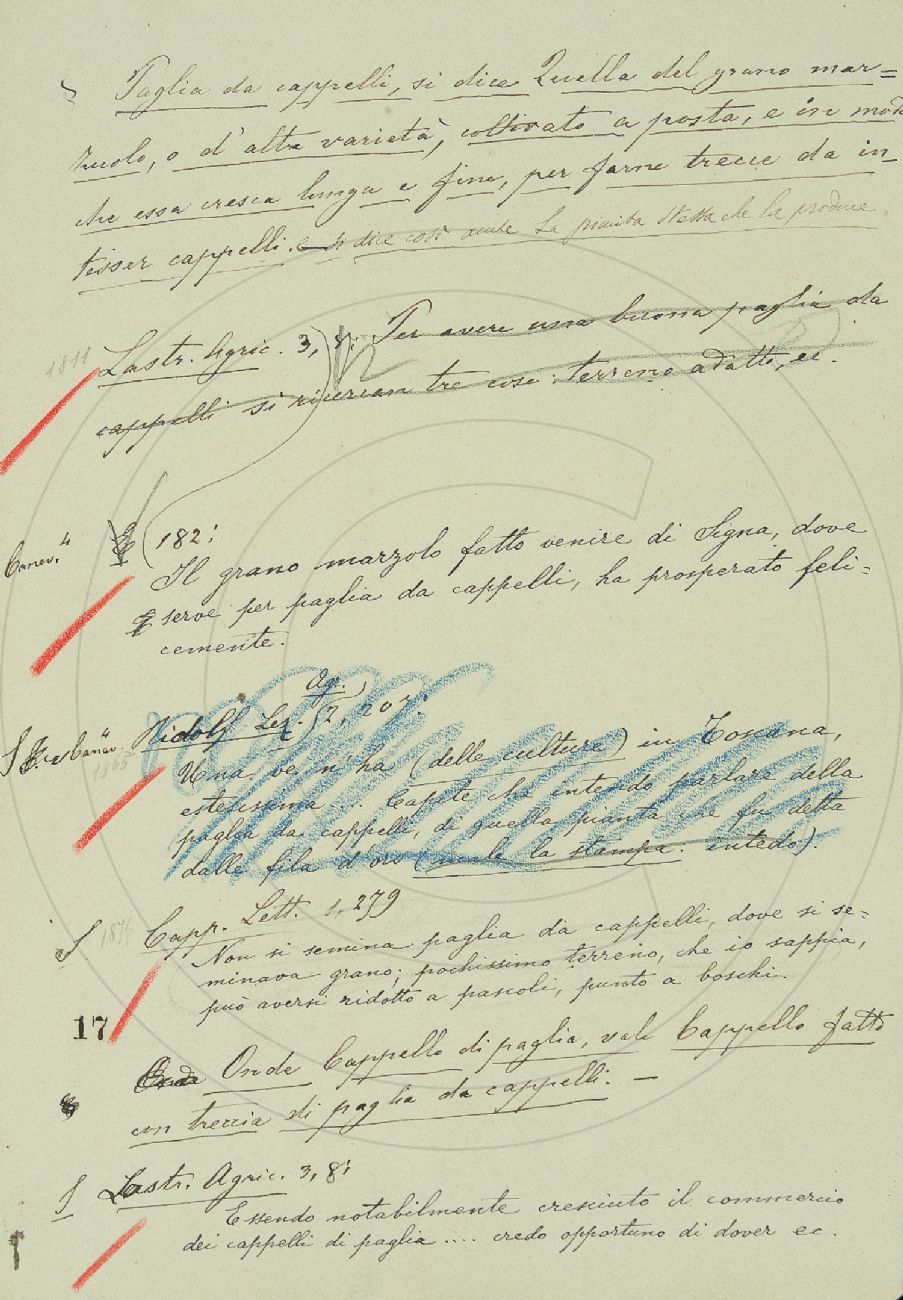 Paglia da cappelli, si dice Quella del grano mar=
zuolo, o d'altra varietà, coltivato a posta, e in modo
che essa cresca lunga e fine, per farne trecce da in=
tesser cappelli. e si dice così anche La pianta stessa che la produce.
1811 Lastr. Agric. 3, 8: Per avere una buona paglia da
cappelli si ricercan tre cose: terreno adatto, ec.
Canev.ii 182:
Il grano marzolo fatto venire di Signa, dove
serve per paglia da cappelli, ha prosperato feli=
cemente.
Ag.
Ridolf. Lez. 2, 207:
1865
Una ve n'ha (delle culture) in Toscana,
estesissima ... Capite che intendo parlare della
paglia da cappelli, di quella pianta che fu detta
dalle fila d'oro (male la stampa: intedo).
S Capp. Lett. 1, 279
Non si semina paglia da cappelli, dove si se=
minava grano; pochissimo terreno, che io sappia,
può aversi ridotto a pascoli, punto a boschi.
17
Onde Cappello di paglia, vale Cappello fatto
con treccia di paglia da cappelli. —
S Lastr. Agric. 3, 8:
Essendo notabilmente cresciuto il commercio
dei cappelli di paglia .... credo opportuno di dover ec.